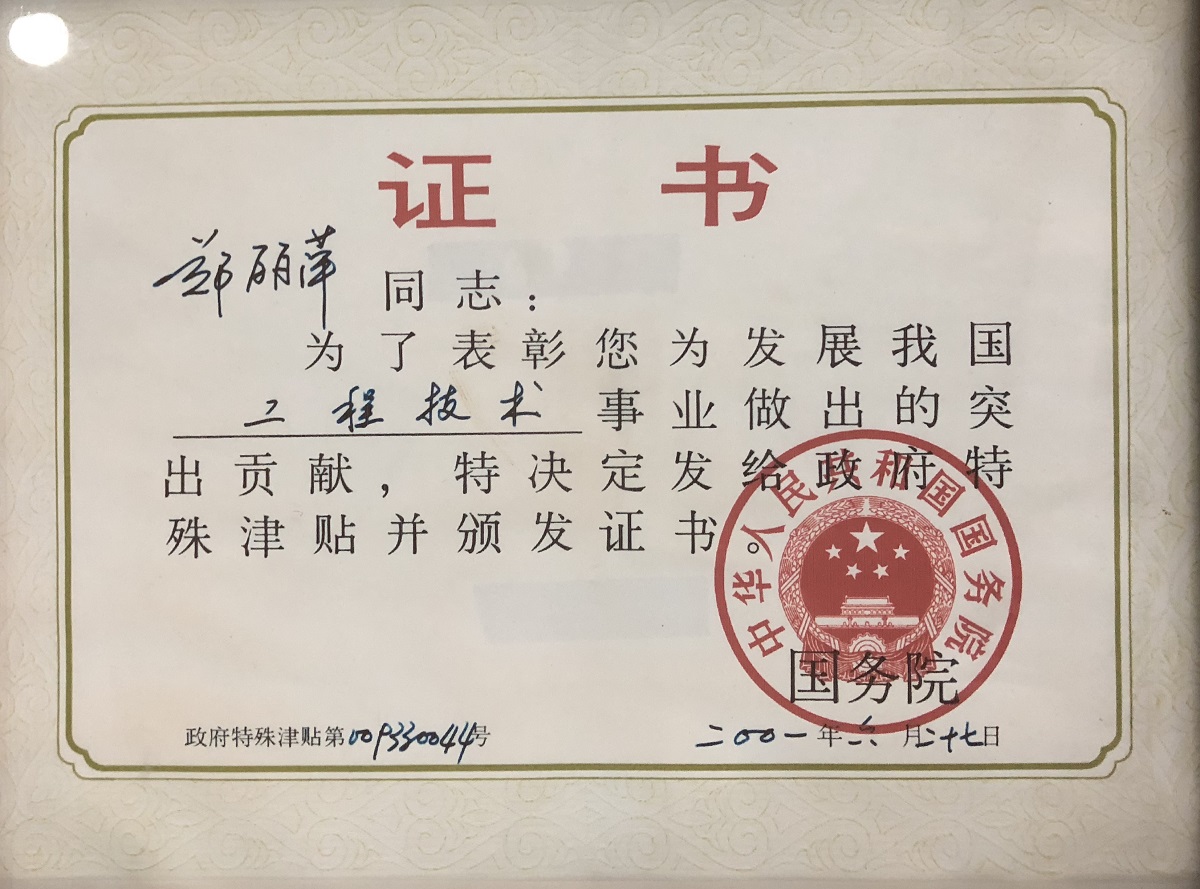 证书
郑丽萍 同志：
为了表彰您为发展我国
工程技术 事业做出的突
出贡献，特决定发给政府特
殊津贴并颁发证书。
中华人民共和国国务院
国务院
政府特殊津贴第009330044号
二00一年六月二十七日